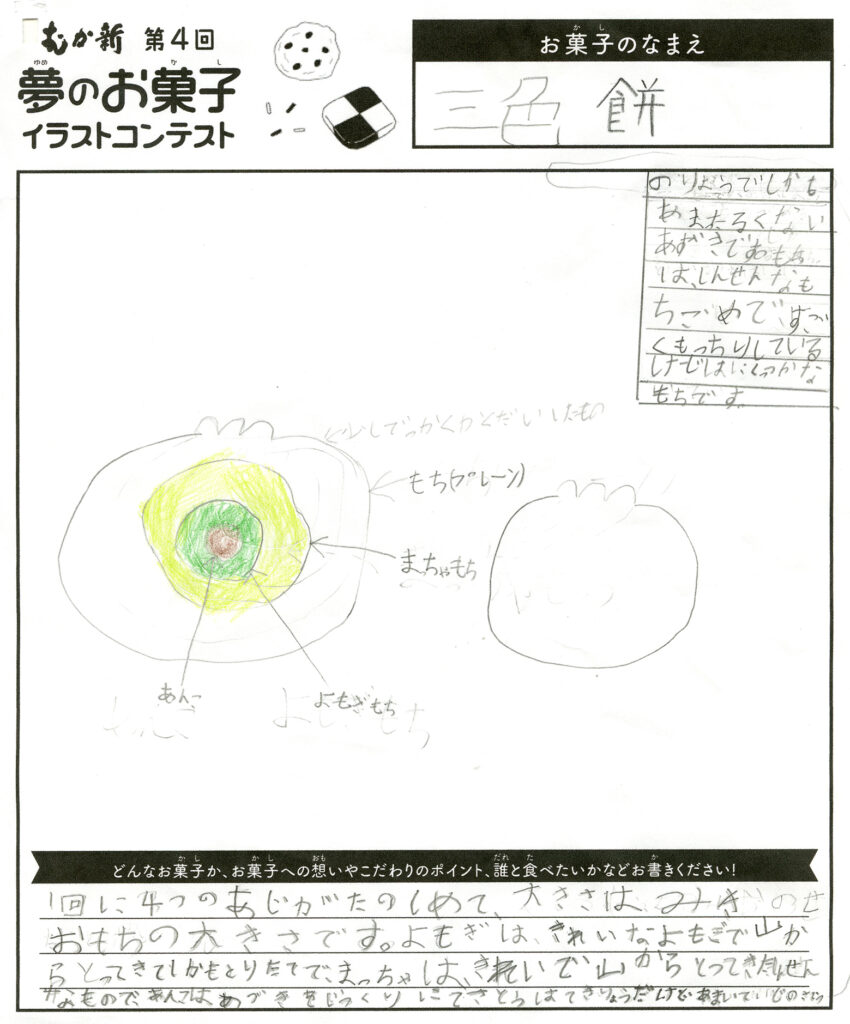 むか新 第4回
夢のお菓子
イラストコンテスト
お菓子のなまえ
三色餅
のりょうでしかも
あまたるくない
あずきでおもち
は、しんせんなも
ちごめですご
くもっちりしている
けどはにくっつかな
もちです
少しでっかくかくだいしたもの
もち(プレーン)
まっちゃもち
あんこ
よもぎもち
どんなお菓子か、お菓子への想いやこだわりのポイント、誰と食べたいかなどお書きください!
1回に4つのあじがたのしめて、大きさは、
おもちの大きさです。よもぎは、きれいなよもぎで山か
らとってきてしかもとりたてで、まっちゃは、きれいで山からとってきた
なもので、あんこはあずきをじっくりにてさとうはてきりょうだけど、あまい